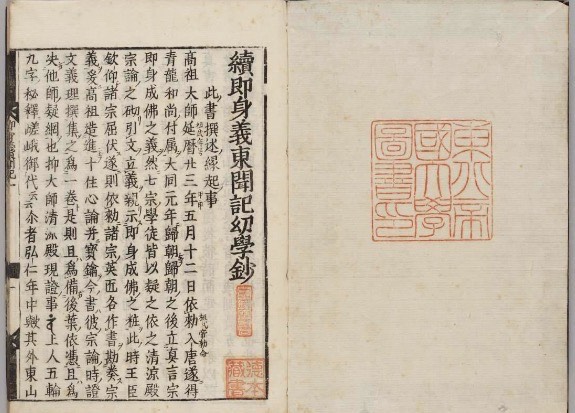 東北帝
國大學
圖書印
續即身義東聞記幼學鈔
此書撰述縁起事
高祖大師延暦廿三年五月十二日依勅入唐遂得
青龍和尚付属大同元年歸朝歸朝之後立真言宗
即身成佛之義然七宗學徒皆以疑之依之清涼殿
宗論之砌引文立義親示即身成佛之粧此時王臣
欽仰諸宗屈伏遂則依勅諸宗英匠各作書勘奏宗
義爰高祖造進十住心論并寶鑰今書彼宗論時證
文義理撰集之為一卷是則且為備後葉依憑且為
失他師疑網也抑大師清涼殿現證事上人五輪
九字秘釋嵯峨御代云云余者弘仁年中與其外東山